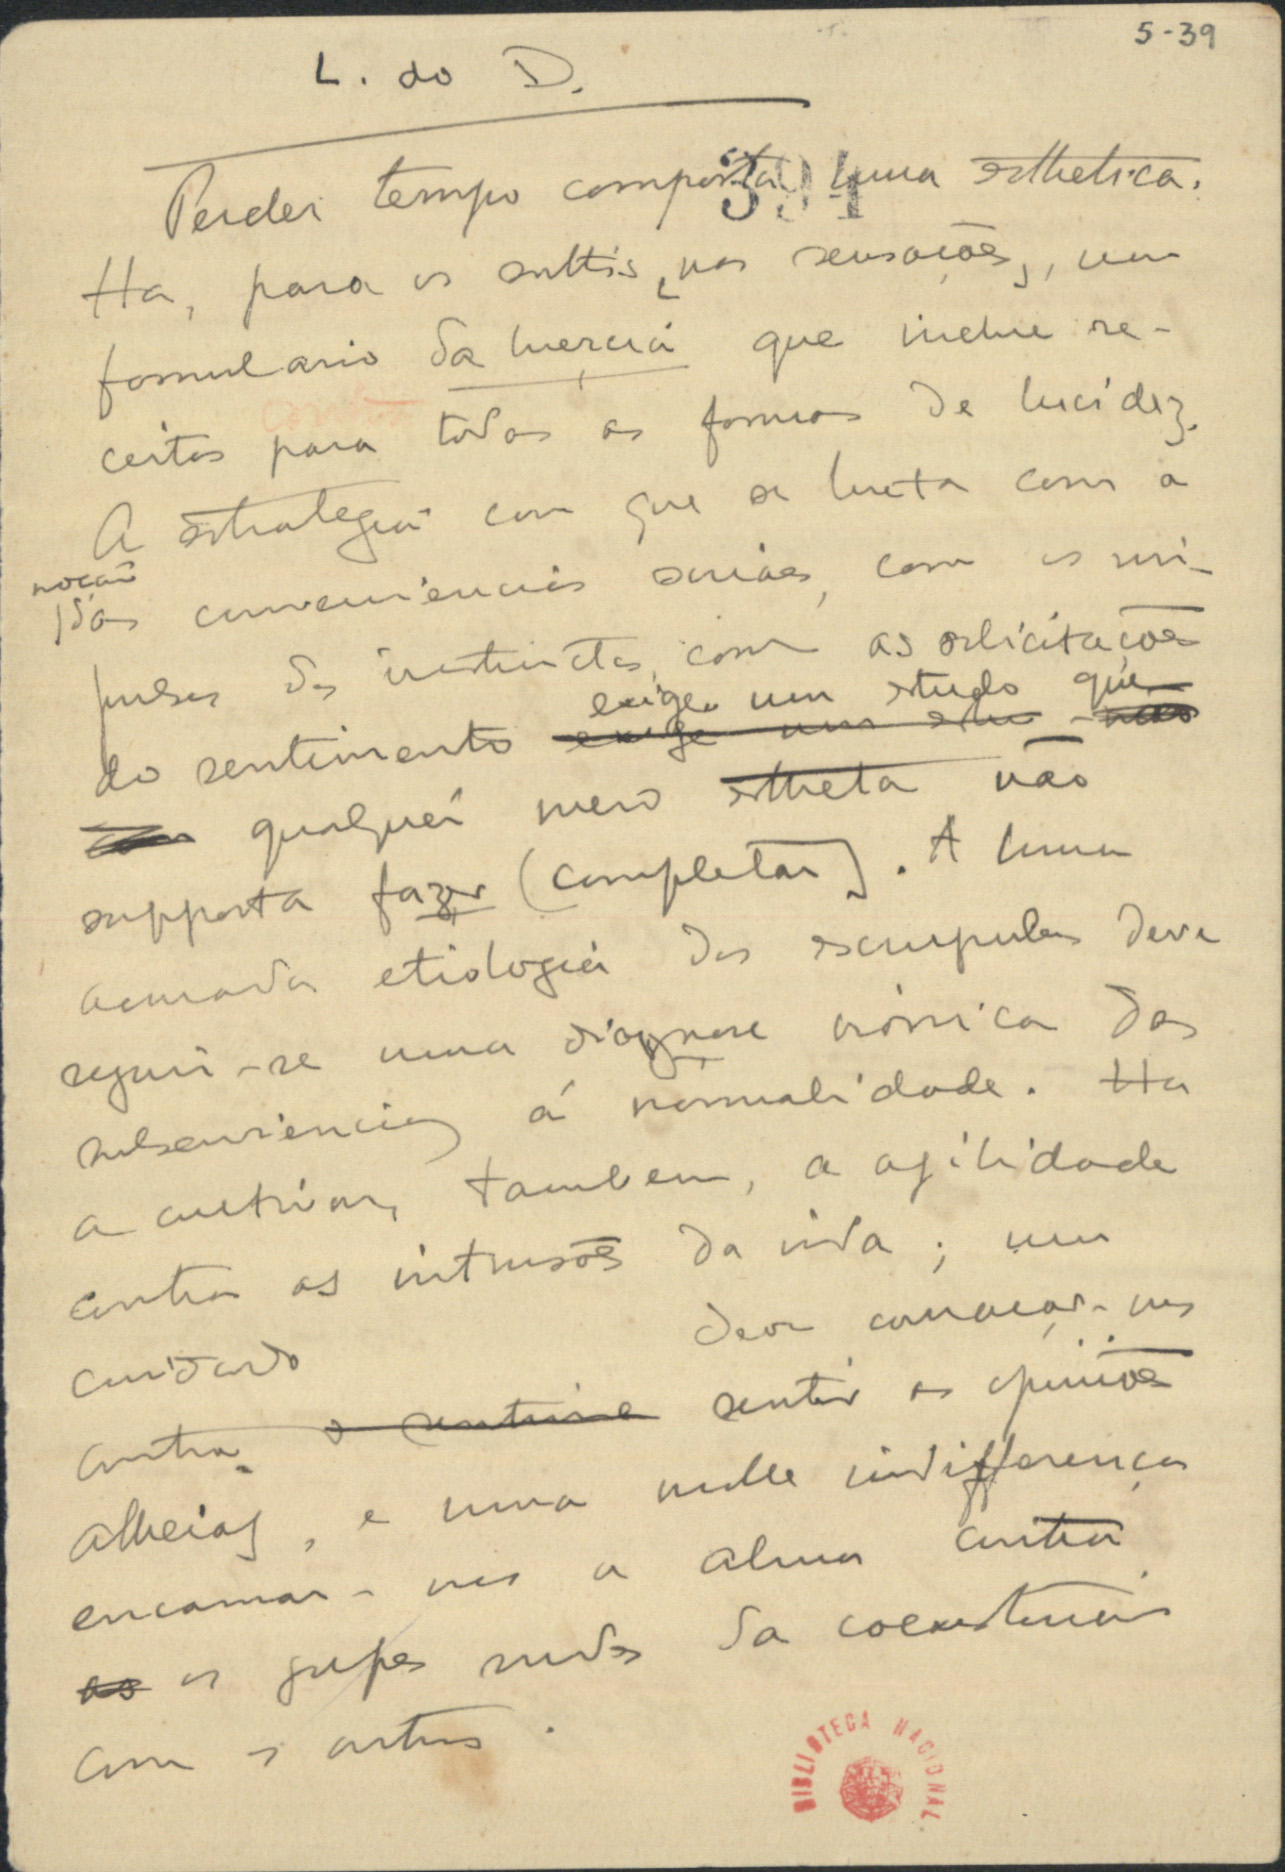 5-39
L. do D.
394
Perder tempo comporta uma esthetica.
Ha, para os subtis nas sensações, um
formulario da inercia que inclue re-
ceitas para todas as formas de lucidez.
A estrategia com que se lucta com a
noção
das conveniencias sociaes, com os im-
pulsos dos instinctos, com as solicitações
exige um estudo que
do sentimento exige um estu
qualquer mero estheta não
supporta fazer (completar). A uma
acurada etiologia dos escrupulos deve
seguir-se uma diagnose ironica das
subserviencias á normalidade. Ha
a cultivar, tambem, a agilidade
contra as intrusões da vida; um
cuidado deve couraçar-nos
contra o sentime sentir as opiniões
alheias, e uma molle indifferença
encamar-nos a alma contra
as os golpes surdos da coexistencia
com os outros.
BIBLIOTECA NACIONAL